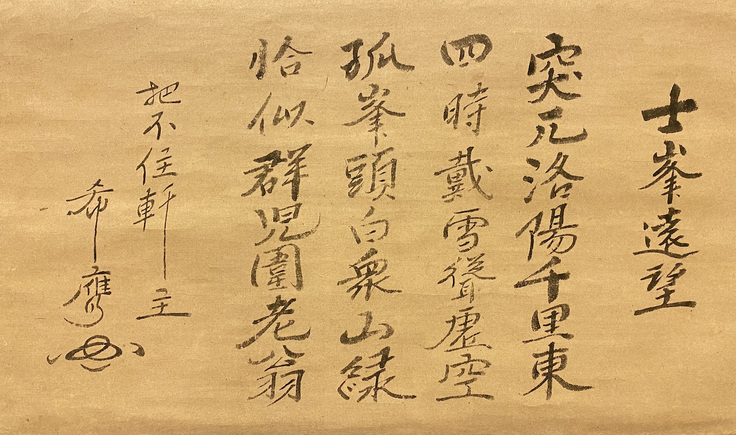 士峯遠望
突兀洛陽千里東
四時戴雪聳虚空
孤峯頭白衆山緑
恰似群児圍老翁
把不住軒主
希膺